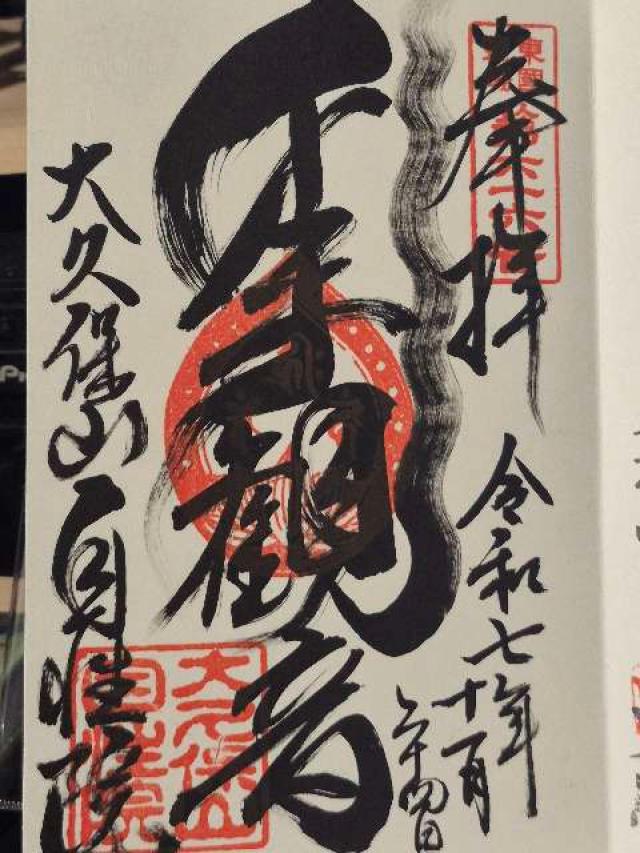 奉拝
令和七年
十一月
二十四日
千手観音
大久保山自性院
大久保山
自性院